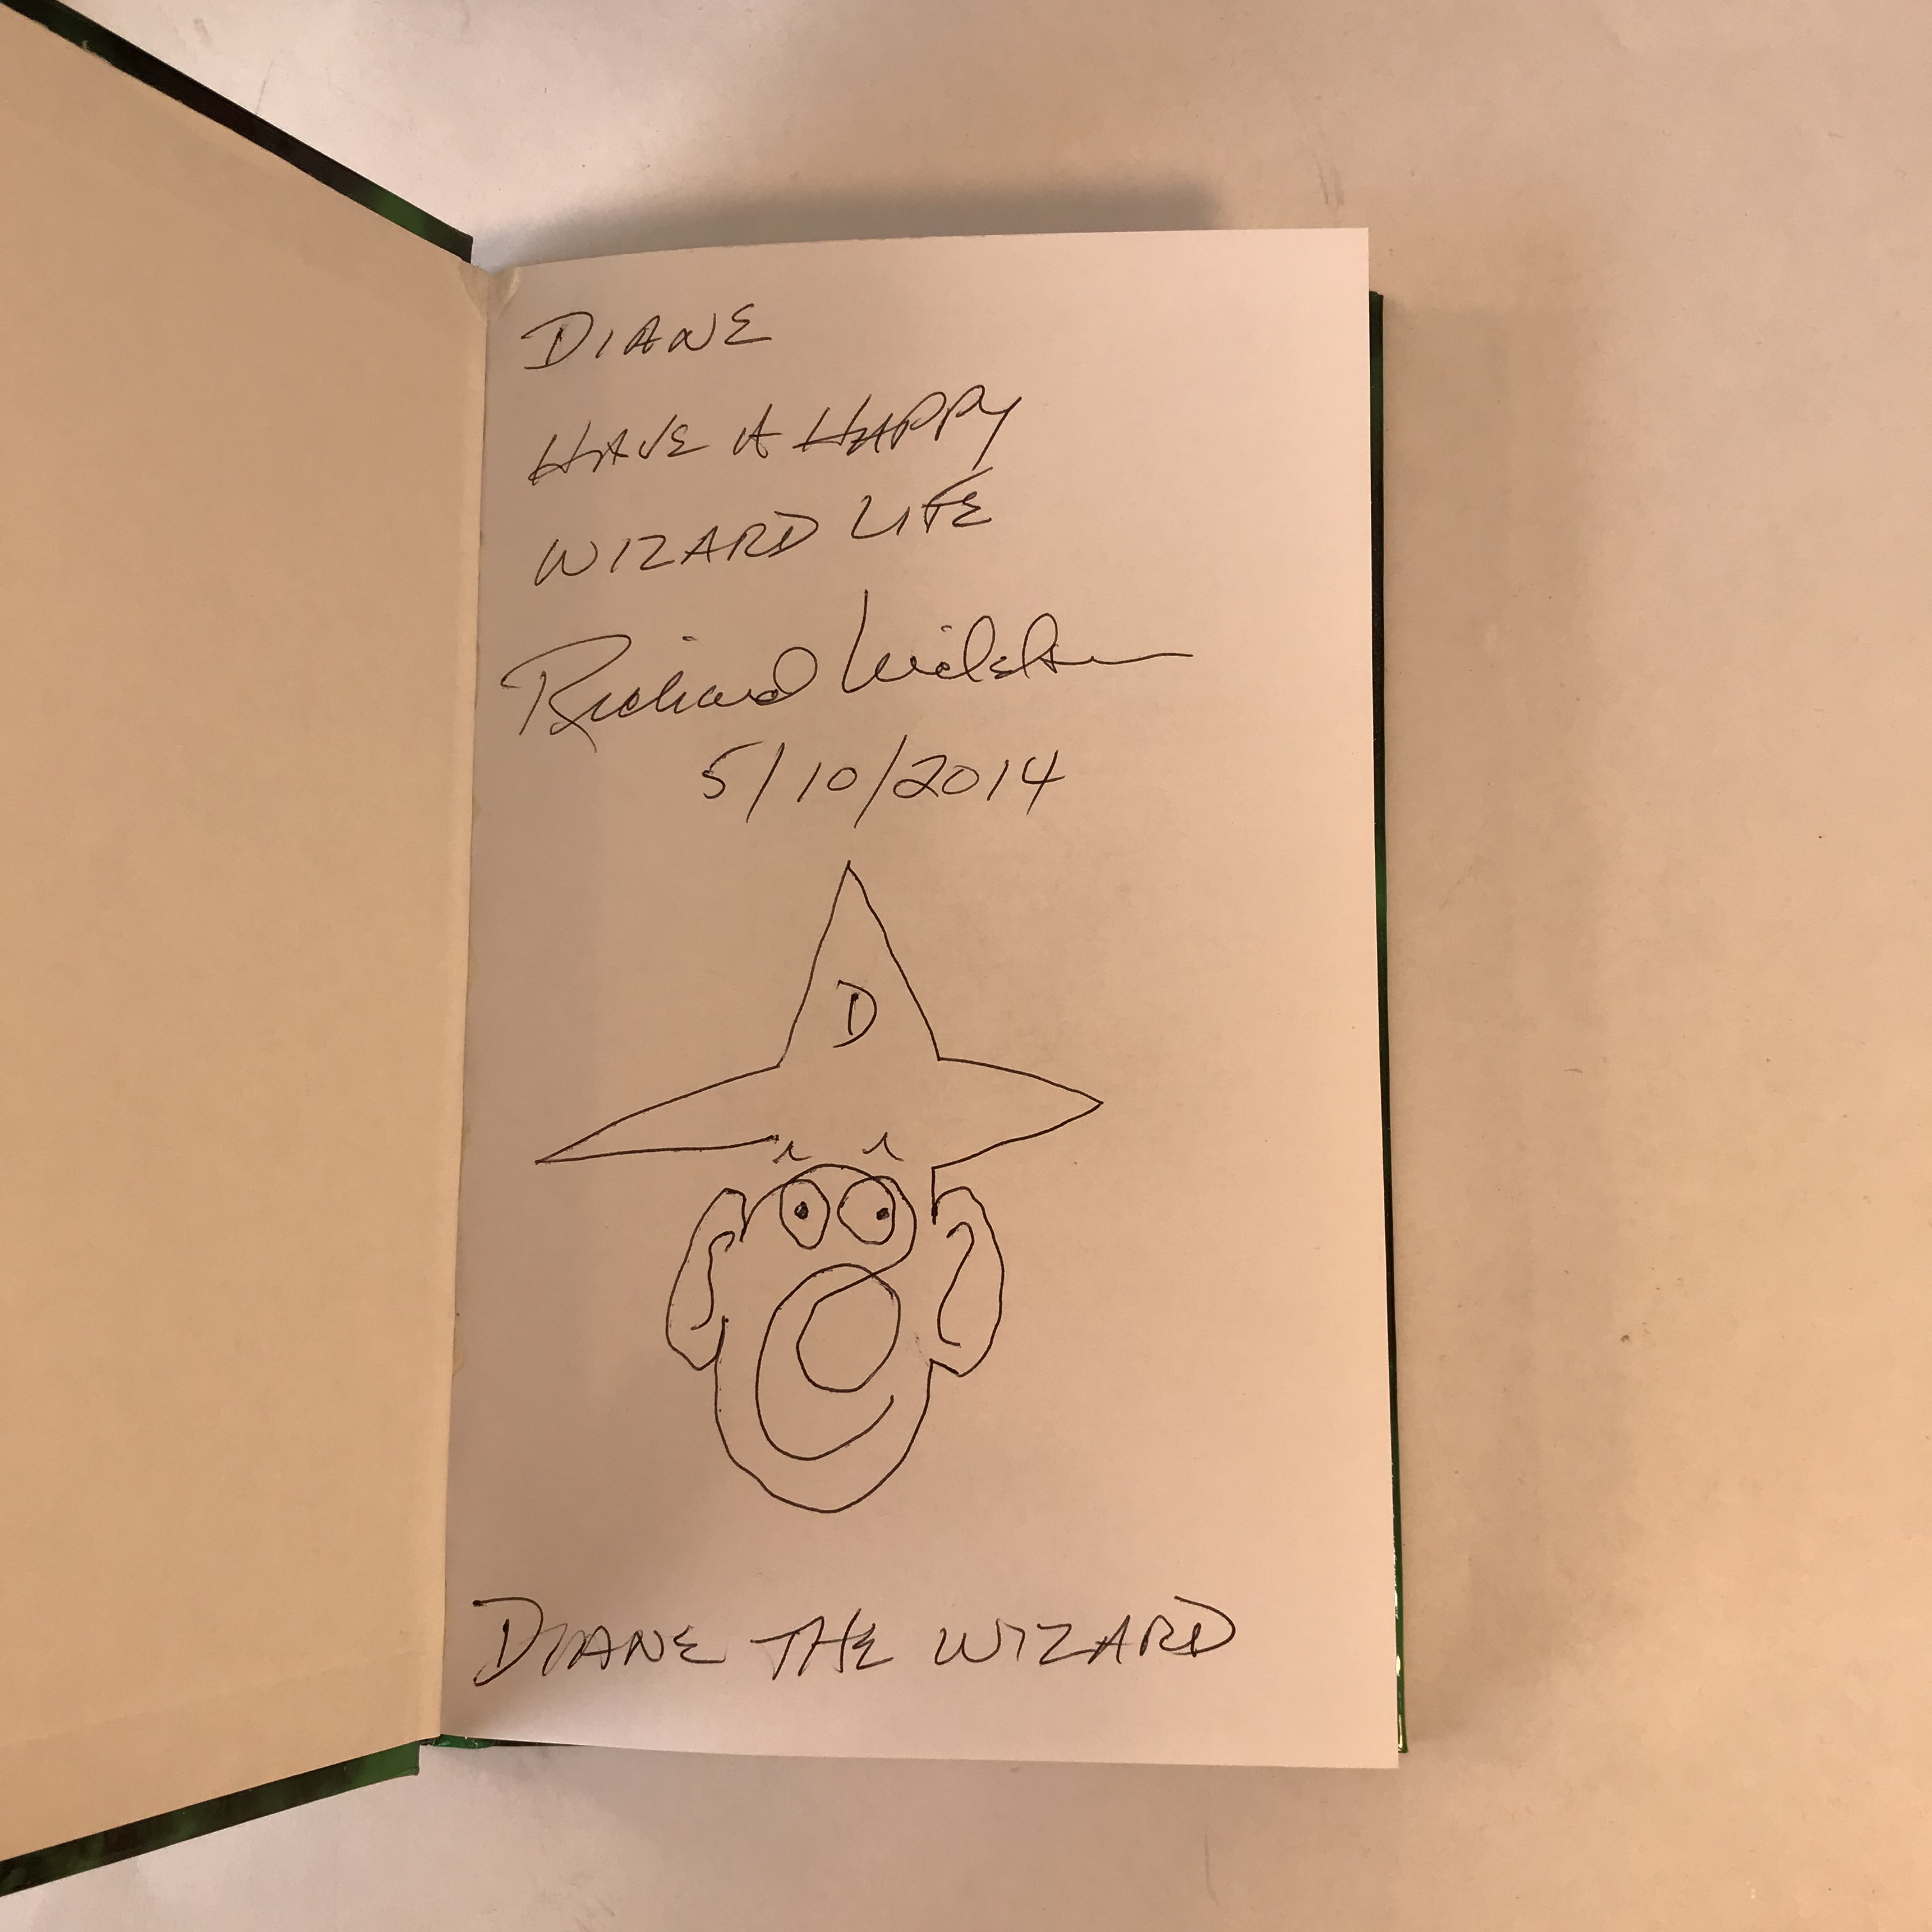 DIANE
HAVE A HAPPY
WIZARD LIFE
Richard
5/10/2014
D
DIANE THE WIZARD